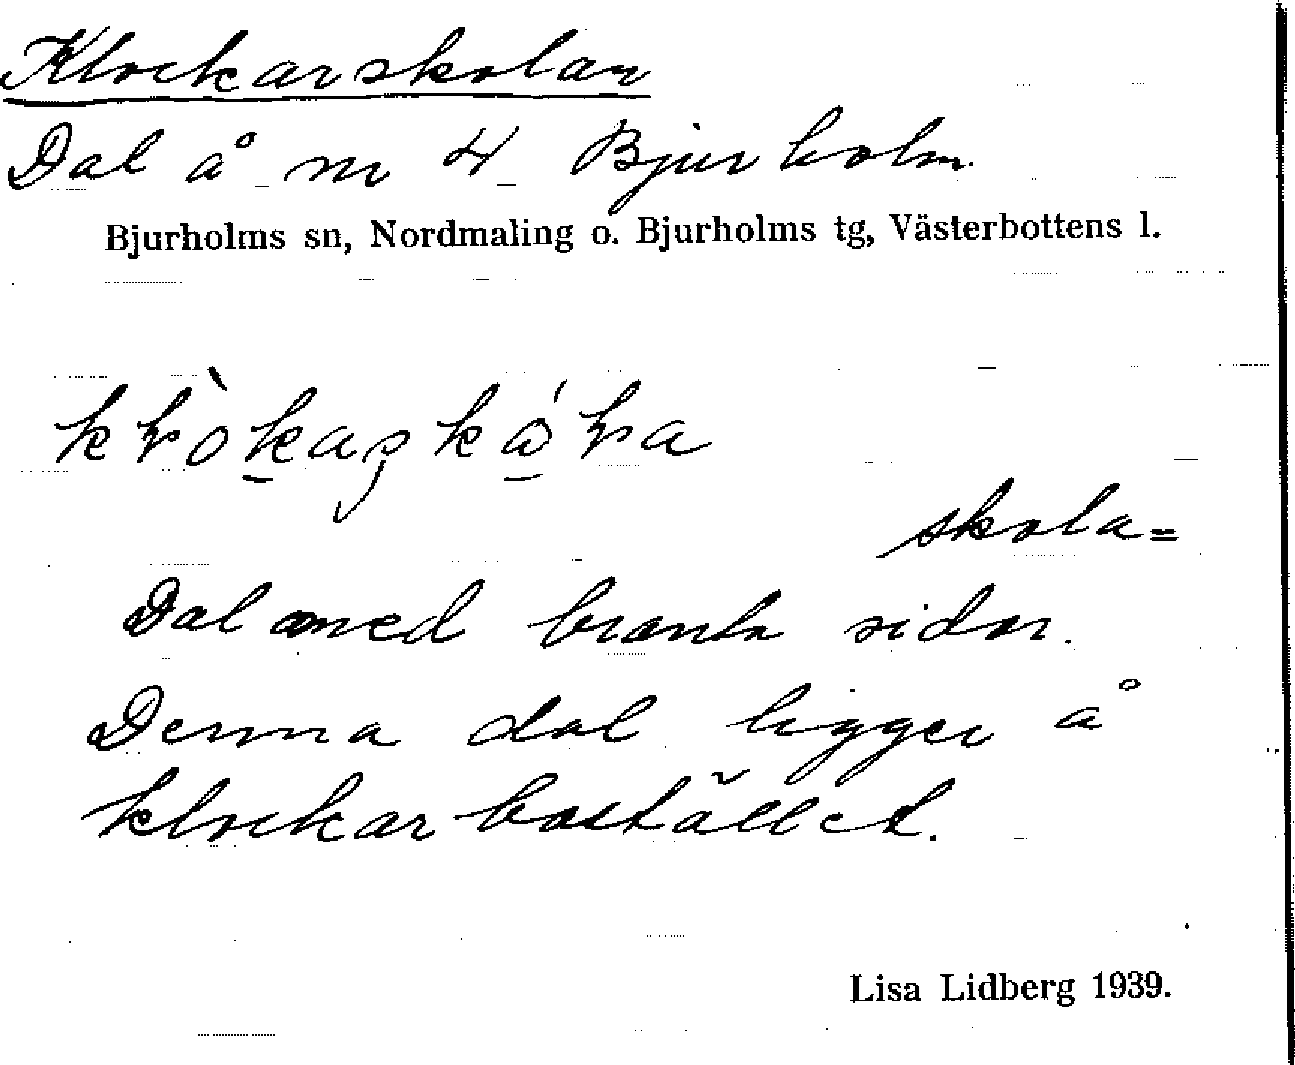 Klockarskolan
Dal å nr 4 Bjurholm
Bjurholms sn, Nordmaling o. Bjurholms tg, Västerbottens l.
skola=
Dal med branta sidor.
Denna dal ligger å
klockarbostället.
Lisa Lidberg 1939.